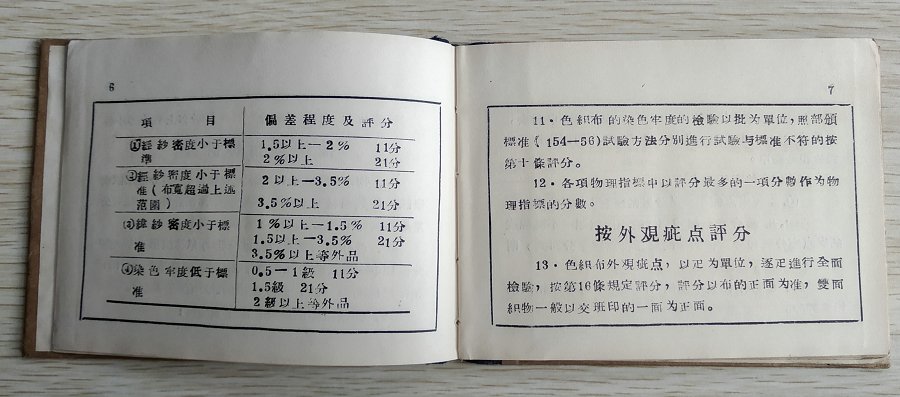 6
項 目 偏差程度及評分
①經紗密度小于標准 1.5以上—2% 11分
2%以上 21分
②經紗密度小于標准(布寬超過上述范圍) 2以上—3.5% 11分
3.5%以上 21分
③緯紗密度小于標准 1%以上—1.5% 11分
1.5以上—3.5% 21分
3.5%以上等外品
④染色牢度低于標准 0.5—1級 11分
1.5級 21分
2級以上等外品
7
11·色織布的染色牢度的檢驗以批为單位,照部頒
標准(154—56)試驗方法分別進行試驗与標准不符的按
第十條評分。
12·各項物理指標中以評分最多的一項分數作为物
理指標的分數。
按外观疵点評分
13·色織布外观疵点,以疋为單位,逐疋進行全面
檢驗,按第16條規定評分,評分以布的正面为准,雙面
織物一般以交班印的一面为正面。